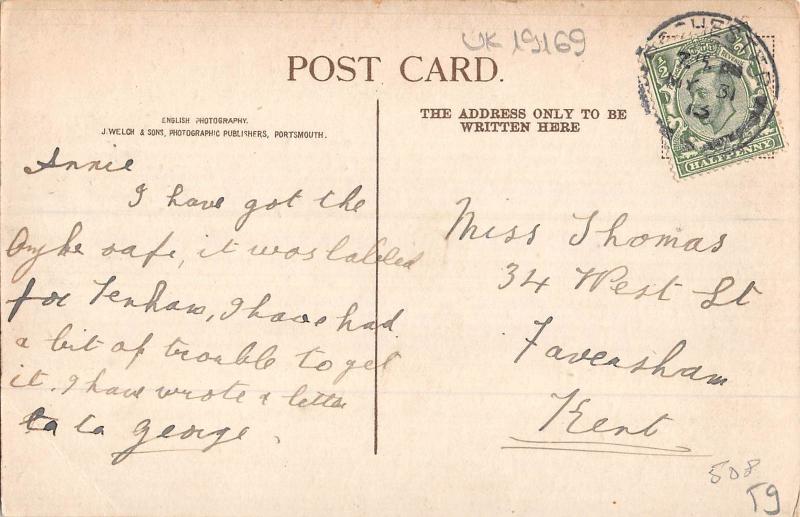 UK 19169
POST CARD.
ENGLISH PHOTOGRAPHY.
J. WELCH & SONS, PHOTOGRAPHIC PUBLISHERS, PORTSMOUTH.
THE ADDRESS ONLY TO BE
WRITTEN HERE
½
½
HALFPENNY
Annie
I have got the
safe, it was labled
for Tenham, I have had
a bit of trouble to get
it. I have wrote a letter
ta ta George.
Miss Thomas
34 West St
Faversham
Kent
508
T9